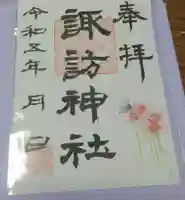 奉拝
諏訪神社
令和五年 月 日